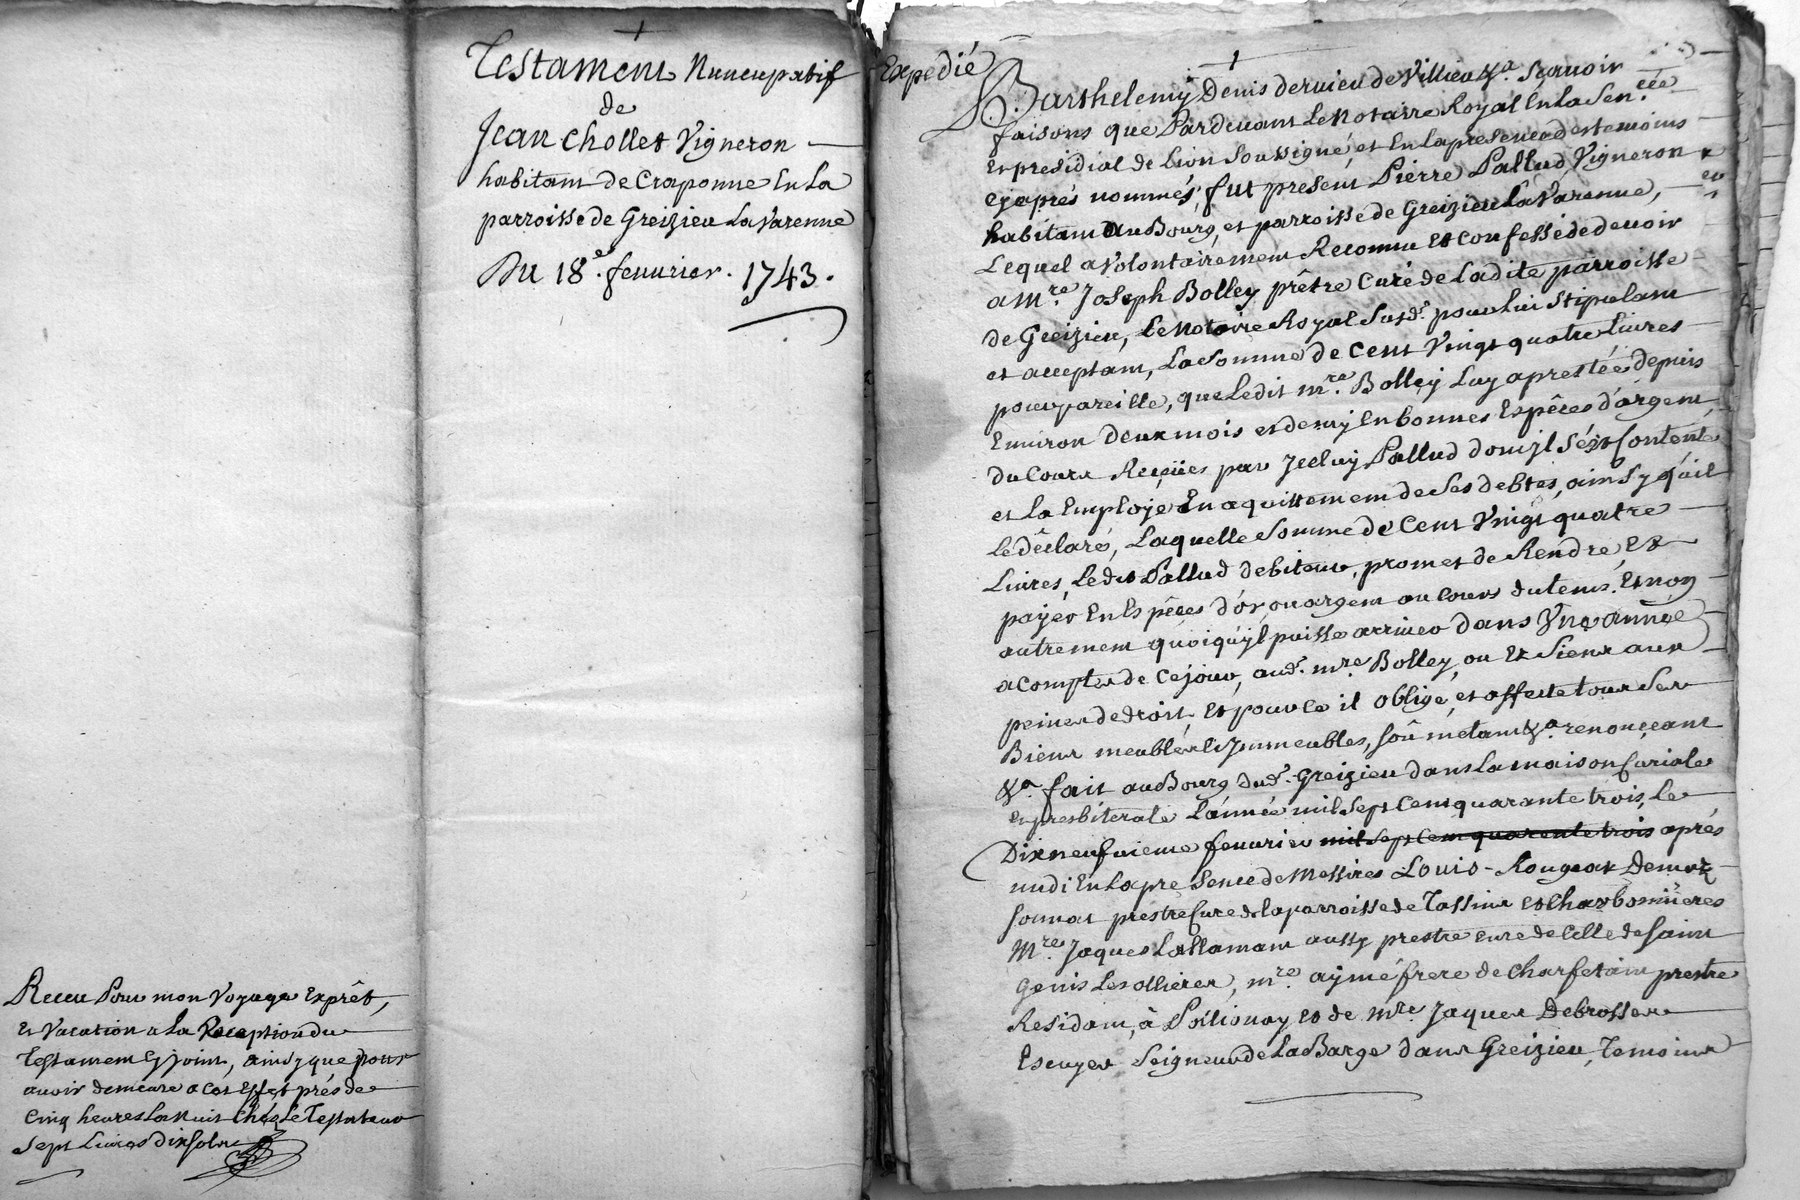 Testament Nuncupatif
de
Jean Chollet Vigneron
habitant de Craponne En La
parroisse de Greizieu La Varenne
Du 18e. feuurier. 1743.
Receu Pour mon Voyage Exprêt,
Et Vacation a La Reception du
Testament Cy joint, ainsy que pour
auoir demeure a Cet Effet prés de
Cinq heures La Nuit Chéz Le Testateur
Sept Liures dix sols
Expedié
Barthelemy Denis deruieu de Villieu &a. Sçauoir
faisons que Pardeuant Le Notaire Royal En La Sen.cée
et presidial de Lion Soussigné, et En La presence des temoins
cy aprés nommés, fut present Pierre Pallud, Vigneron
habitant au Bourg, et parroisse de Greizieu La Varenne,
Lequel a Volontairement Reconnu Et Confessé de deuoir
a Mre. Joseph Bolley prêtre Curé de Ladite parroisse
de Greizieu, Le Notaire Royal Susd. pour Lui Stipulant
et acceptant, La Somme de Cent Vingt quatre Liures
pour pareille, que Ledit mre. Bolley Luy a prestée depuis
Enuiron deux mois et demy En bonnes Espêces d'argent,
du Cours Reçües par Jceluy Pallud dont jl S'ést Contenté
et La Employé En aquittement de Ses debtes, ainsy qu'il
Le déclaré, Laquelle Somme de Cent Vingt quatre
Liures, Ledit Pallud debiteur, promet de Rendre, Et
payer En Espêces d'or ou argent au Cours du tems. Et non
autrement quoiqu'jl puisse arriuer dans Vne année
a Compter de Cejour, aud. mre Bolley, ou Et Siens aux
peines de droit, Et pour Ce il oblige, et affecte tous Ses
Biens meubles Et Jmmeubles, soûmétant &a. renonçeant
&a. fait au Bourg dud. Greizieu dans La maison Curiale
Et presbiterale L'année mil Sept Cent quarante trois, Le
Dixneufuieme feuurier mil Sept Cent quarente trois aprés
midi En La presence de Messires Louis Rougeat Demor
sonnat prestre Cure de La parroisse de Tassins Et Charbonnieres
Mre. Jaques Lallamant aussy prestre cure de Celle de Saint
Genis Les Ollieres, mre. aymé frere de Charfetain prestre
Residant, à Pollionay Et de Mre Jaques Debrosses
Escuyer Seigneur de La Barge dans Greizieu, Temoins